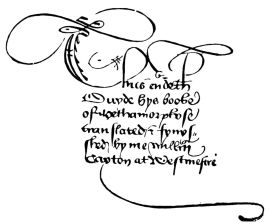 Thus endeth
Ouyde hys booke
of Methamorphose
translated & fynys
shed by me willm
Caxton at Westmestre